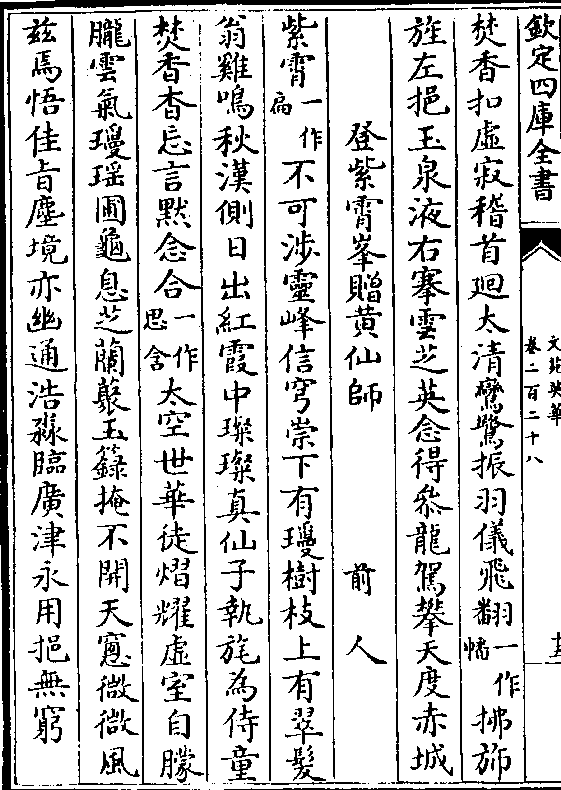 欽定四庫全書
文苑英華
卷二百二十八
焚香扣虛寂稽首廻太清鸞鷺振羽儀飛翻一作幡拂旆
旌左挹玉泉液右搴雲芝英念得叅龍駕攀天度赤城
登紫霄峯贈黄仙師 前人
紫霄一作扃不可涉靈峰信穹崇下有瓊樹枝上有翠髮
翁雞鳴秋漢側日出紅霞中璨璨真仙子執旄為侍童
焚香杳忘言默念合一作思舍太空世華徒熠耀虛室自朦
朧雲氣瓊瑶圃龜息芝蘭藂玉籙掩不開天窻微微風
兹焉悟佳旨塵境亦幽通浩淼臨廣津永用挹無窮